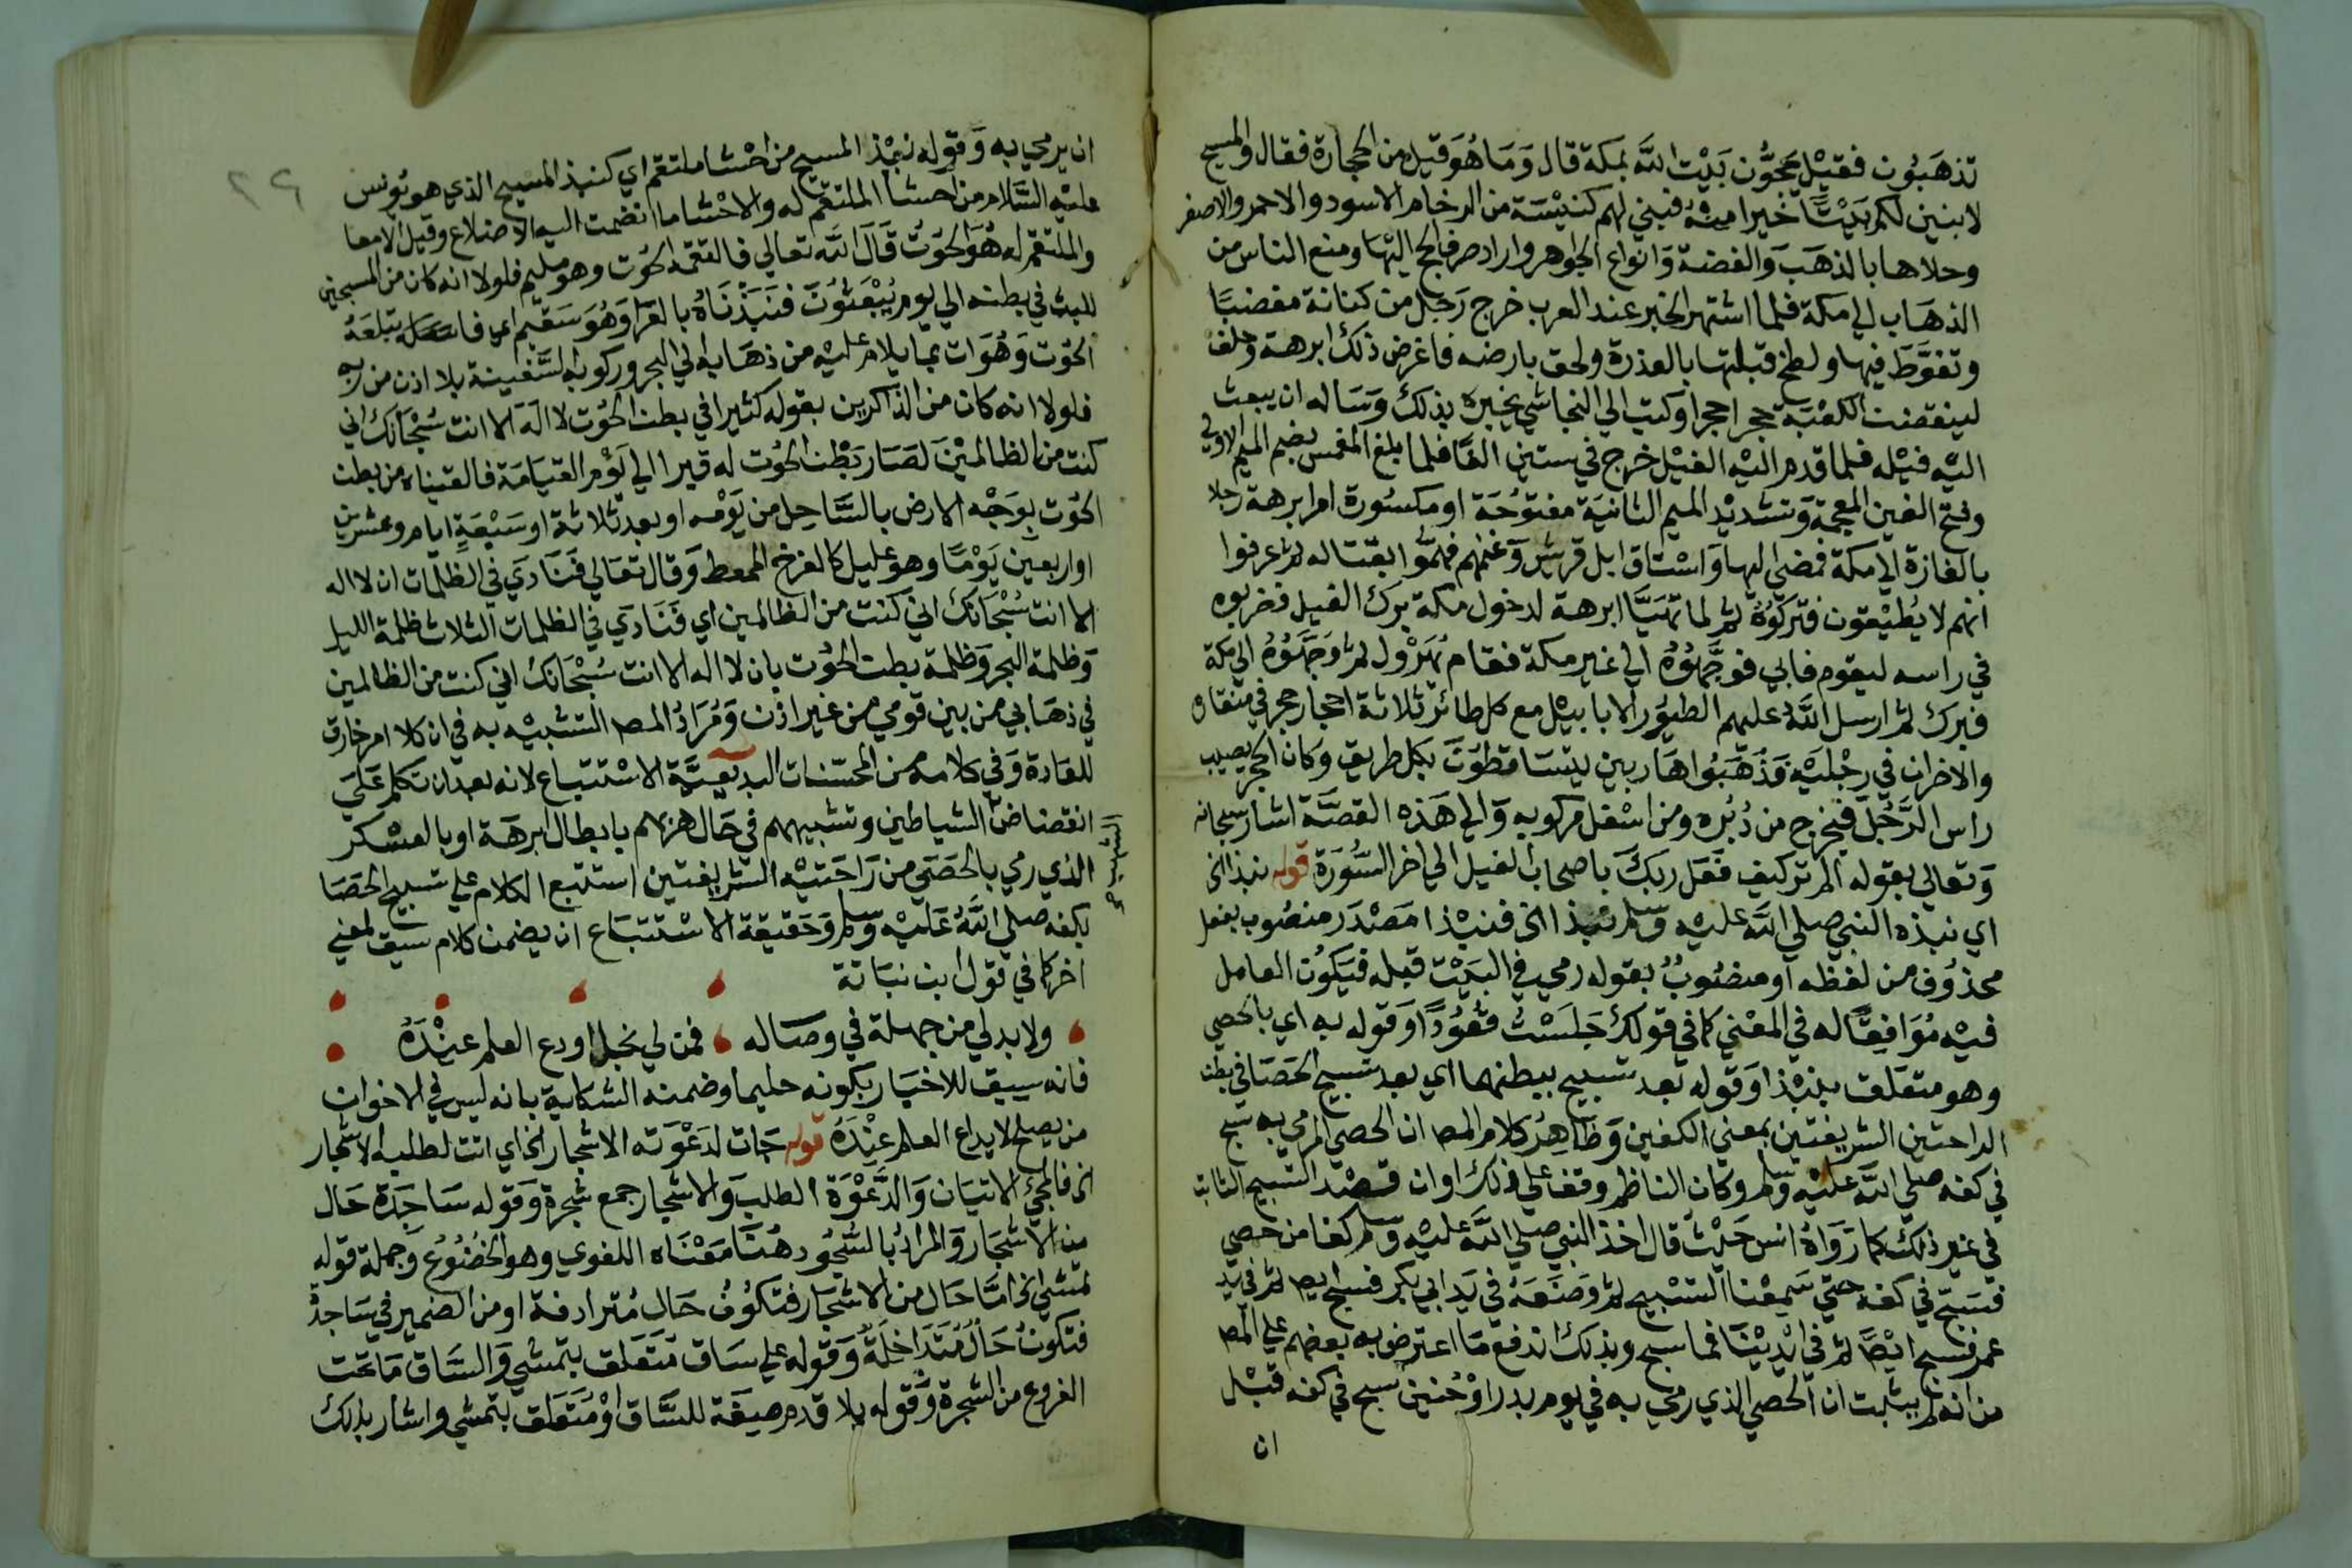 تذهبون فقيل يحجون بيت الله بمكة قال وما هو قيل من الحجارة فقال والمسيح
لابنين لكم بيتا خيرا منه فبني لهم كنيسة من الرخام الاسود والاحمر والاصفر
وحلاها بالذهب والفضة وانواع الجواهر واراد صرف الحج اليها ومنع الناس من
الذهاب الي مكة فلما اشتهر الخبر عند العرب خرج رجل من كنانة مغضبا
وتغوط فيها ولطخ قبلتها بالعذرة ولحق بارضه فاغرض ذلك ابرهة وحلف
لينقضن الكعبة حجرا حجرا وكتب الي النجاشي يخبره بذلك وساله ان يبعث
اليه فيله فلما قدم اليه الفيل خرج في ستين الفا فلما بلغ المغمس بضم الميم الاولي
وفتح الغين المعجمة وتشديد الميم الثانية مفتوحة او مكسورة امر ابرهة رجلا
بالغارة الي مكة فمضي اليها واستاق ابل قريش وغنمهم فهموا بقتاله ثم عرفوا
انهم لا يطيقون فتركوه ثم لما تهيا ابرهة لدخول مكة برك الفيل فضربوه
في راسه ليقوم فابي فوجهوه الي غير مكة فقام يهرول ثم وجهوه الي مكة
فبرك ثم ارسل الله عليهم الطيور الابابيل مع كل طائر ثلاثة احجار حجر في منقاره
والاخران في رجليه فذهبوا هاربين يتساقطون بكل طريق وكان الحجر يصيب
راس الرجل فيخرج من دبره ومن اسفل مركوبه والي هذه القصة اشار سبحانه
وتعالي بقوله الم تر كيف فعل ربك باصحاب الفيل الي اخر السورة قوله نبذا الخ
اي نبذه النبي صلي الله عليه وسلم نبذا الخ فنبذا مصدر منصوب بفعل
محذوف من لفظه او منصوب بقوله رمي في البيت قبله فيكون العامل
فيه موافقا له في المعني كما في قولك جلست قعودا وقوله به اي بالحصي
وهو متعلق بنبذا وقوله بعد تسبيح ببطنهما اي بعد تسبيح الحصا في بطن
الراحتين الشريفتين بمعني الكفين وظاهر كلام المص ان الحصي المرمي به سبح
في كفه صلي الله عليه وسلم وكان الناظم وقف علي ذلك او ان قصد التسبيح الثابت
في غير ذلك كما رواه انس حيث قال اخذ النبي صلي الله عليه وسلم كفا من حصي
فسبح في كفه حتي سمعنا التسبيح ثم وضعه في يد ابي بكر فسبح ايض ثم في يد
عمر فسبح ايضا ثم في ايدينا فما سبح وبذلك اندفع ما اعترض به بعضهم علي المص
من انه لم يثبت ان الحصي الذي رمي به في يوم بدر او حنين سبح في كفه قبل
ان
٢٩
ان يرمي به وقوله نبذ المسبح من احشا ملتقم اي كنبذ المسبح الذي هو يونس
عليه السلام من احشا الملتقم له والاحشا ما انضمت اليه الاضلاع وقيل الامعا
والملتقم له هو الحوت قال الله تعالي فالتقمه الحوت وهو مليم فلولا انه كان من المسبحين
للبث في بطنه الي يوم يبعثون فنبذناه بالعرا وهو سقيم اي فابتلعه
الحوت وهو ات بما يلام عليه من ذهابه الي البحر وركوبه السفينة بلا اذن من ربه
فلولا انه كان من الذاكرين بقوله كثيرا في بطن الحوت لا اله الا انت سبحانك اني
كنت من الظالمين لصار بطن الحوت له قبرا الي يوم القيامة فالقيناه من بطن
الحوت بوجه الارض بالساحل من يومه او بعد ثلاثة او سبعة ايام وعشرين
او اربعين يوما وهو عليل كالفرخ الممعط وقال تعالي فنادي في الظلمات ان لا اله
الا انت سبحانك اني كنت من الظالمين اي فنادي في الظلمات الثلاث ظلمة الليل
وظلمة البحر وظلمة بطن الحوت بان لا اله الا انت سبحانك اني كنت من الظالمين
في ذهابي من بين قومي من غير اذن ومراد المص التشبيه به في ان كلا امر خارق
للعادة وفي كلامه من المحسنات البديعية الاستتباع لانه بعد ان تكلم علي
انقضاض الشياطين وتشبيههم في حال هزمهم بابطال ابرهة او بالعسكر
الذي رمي بالحصي من راحتيه الشريفتين استتبع الكلام علي تسبيح الحصا
بكفه صلي الله عليه وسلم وحقيقة الاستتباع ان يضمن كلام سيق لمعني
اخر كما في قول ابن نباتة
ولا بد لي من جهلة في وصاله فمن لي بخل اودع العلم عنده
فانه سيق للاخبار بكونه حليما وضمنه الشكاية بانه ليس في الاخوان
من يصلح لايداع العلم عنده قوله جات لدعوته الاشجار الخ اي اتت لطلبه الاشجار
الخ فالمجئ الاتيان والدعوة الطلب والاشجار جمع شجرة وقوله ساجدة حال
من الاشجار والمراد بالسجود هنا معناه اللغوي وهو الخضوع وجملة قوله
تمشي الخ اما حال من الاشجار فتكون حال مترادفة او من الضمير في ساجدة
فتكون حال متداخلة وقوله علي ساق متعلق بتمشي والساق ما تحت
الفروع من الشجرة وقوله بلا قدم صيغة للساق او متعلق بتمشي واشار بذلك